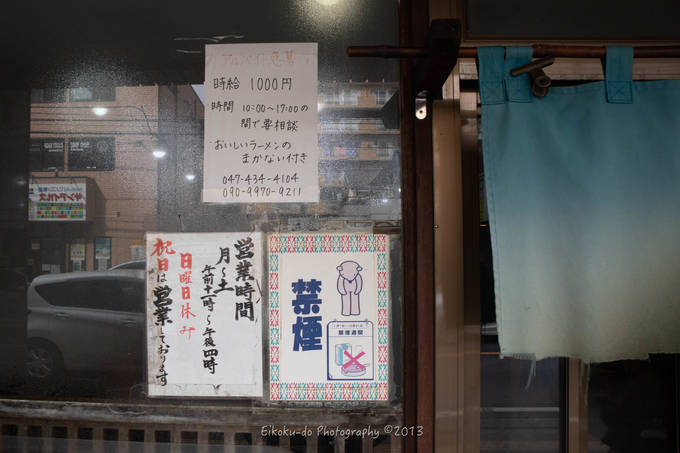 アルバイト急募
時給 1000円
・時間 10:00〜17:00の
間で要相談
・おいしいラーメンの
まかない付き
047-434-4104
090-9970-9211
営業時間
月〜土
午前十一時〜午後四時
日曜日休み
祝日は営業しております
禁煙
禁煙週間
Eikoku-do Photography ©2013